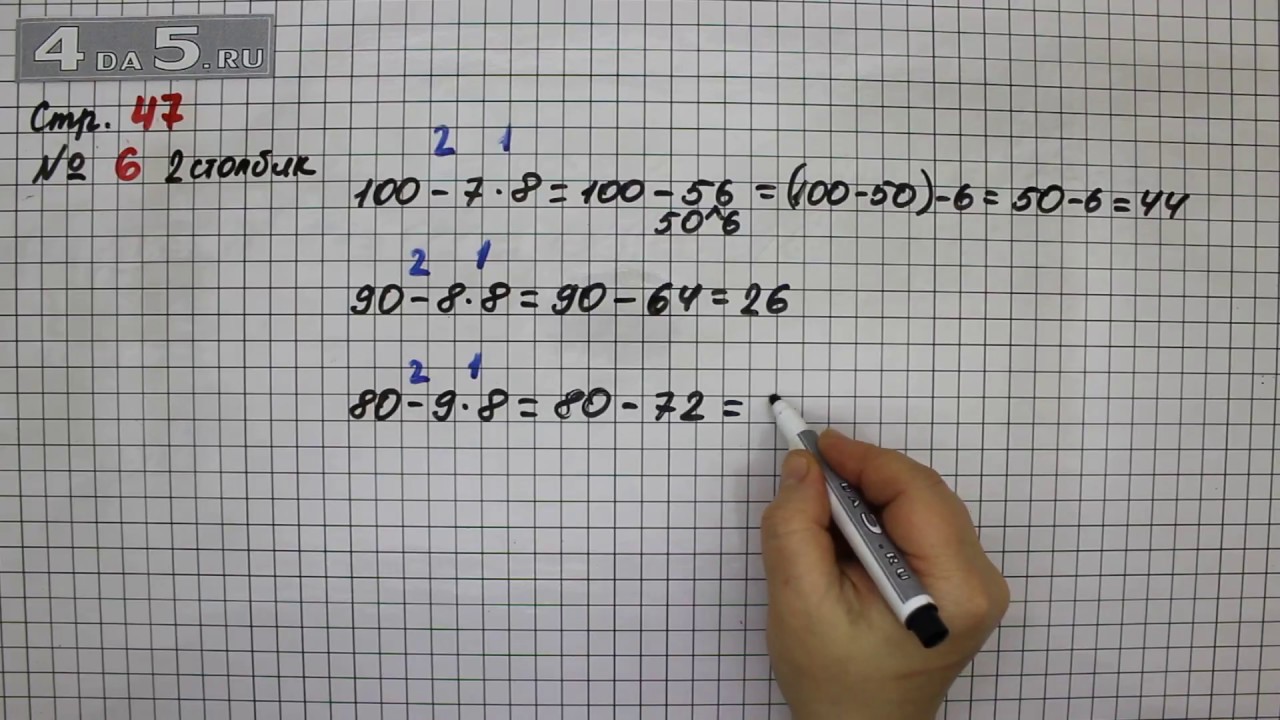 4 DA 5.RU
Стр. 47
№ 6 2 столбик
2 1
100 - 7 · 8 = 100 - 56 = (100 - 50) - 6 = 50 - 6 = 44
50^6
2 1
90 - 8 · 8 = 90 - 64 = 26
2 1
80 - 9 · 8 = 80 - 72 =
DA 5.RU